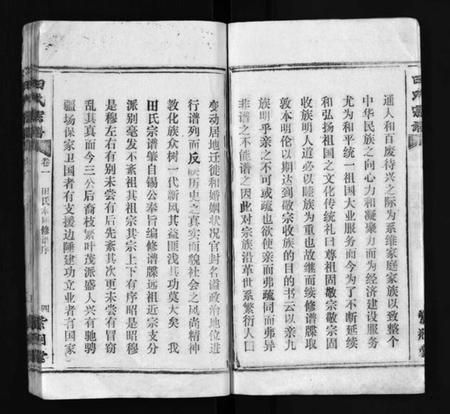 通人和百废待兴之际为系维家庭家族以致整个
中华民族之向心力和凝聚力而为经济建设服务
尤为和平统一祖国大业服务而今为了不断延续
和弘扬祖国之文化传统礼日尊祖固宗敬宗固
收族明人道必以睦族为重也故继而续修谱牒取
敦本明伦以期达到敬宗收族的目的书云以亲九
族明乎亲之不可或疏也欲使亲而弗疏同而弗异
非谱之不能谱之因此对宗族沿革世系繁衍人口
变动居地迁徙和婚姻状况官封名谥政治地位进
行谱列而反映历史之真实而貌社会之风尚精神
教化族众树一代新风其益匪浅其功莫大矣 我
田氏宗谱肇自锡公奉旨编修谱牒远祖近宗支分
派别毫发不紊祖其祖宗其宗上下有序昭是昭穆
是穆左右有别未尝有后先紊其次更未尝有冒窃
乱其真而今三公后裔枝繁叶茂派盛人兴有驰骋
疆场保家卫国者有支援边陲建功立业者有国家
卷一
田氏
修谱序
四
紫荆堂
田氏宗谱